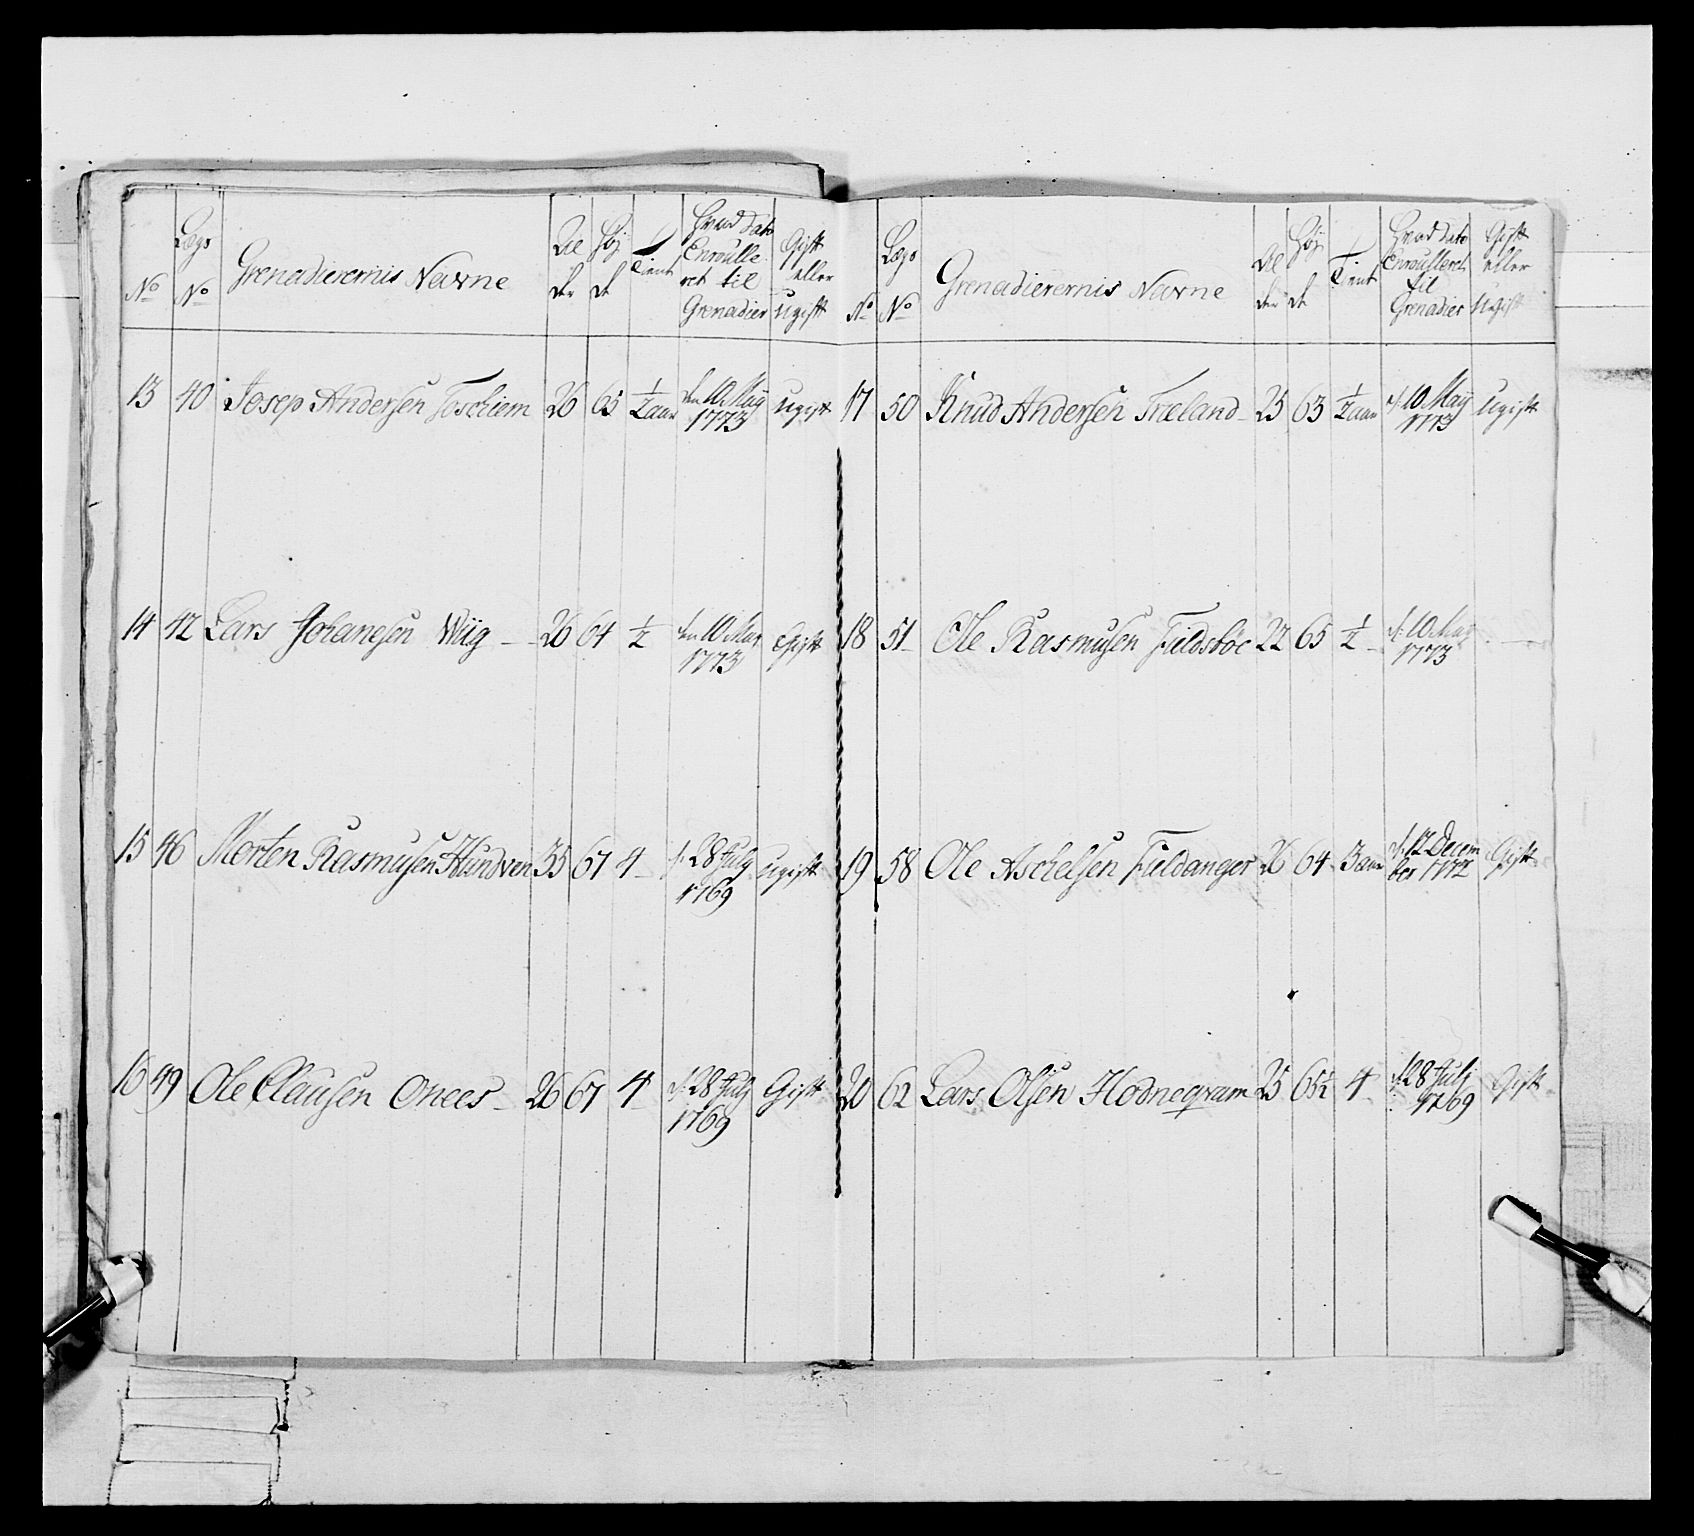 No Lægs No Grenadierernis Navne Al der Høj de Tient Hvad dato Enroulle ret til Grenadier Gift eller Ugift
13 40 Josep Andersen Toschiem 26 65 1/2 aar den 10 May 1773 Ugift
14 42 Lars Johanesen Wiig - 26 64 1/2 den 10 May 1773 Gift
15 46 Morten Rasmusen Hundven 35 67 4 d. 28 July 1769 Ugift
16 49 Ole Clausen Onees - 26 67 4 d. 28 July 1769 Gift
No Lægs No Grenadierernis Navne Al der Høj de Tient Hvad dato Enrousleret til Grenadier Gift eller Ugift
17 50 Knud Andersen Træland - 25 63 1/2 aar d. 10 May 1773 Ugift
18 51 Ole Rasmusen Fieldsbøe 22 65 1/2 d. 10 May 1773 -
19 58 Ole Aschelsen Fieldanger 26 64 3 aar d. 12 Decem ber 1772 Gift
20 62 Lars Olsen Hodneqvam 25 65 1/2 4 d. 28 Julj 1769 Gift